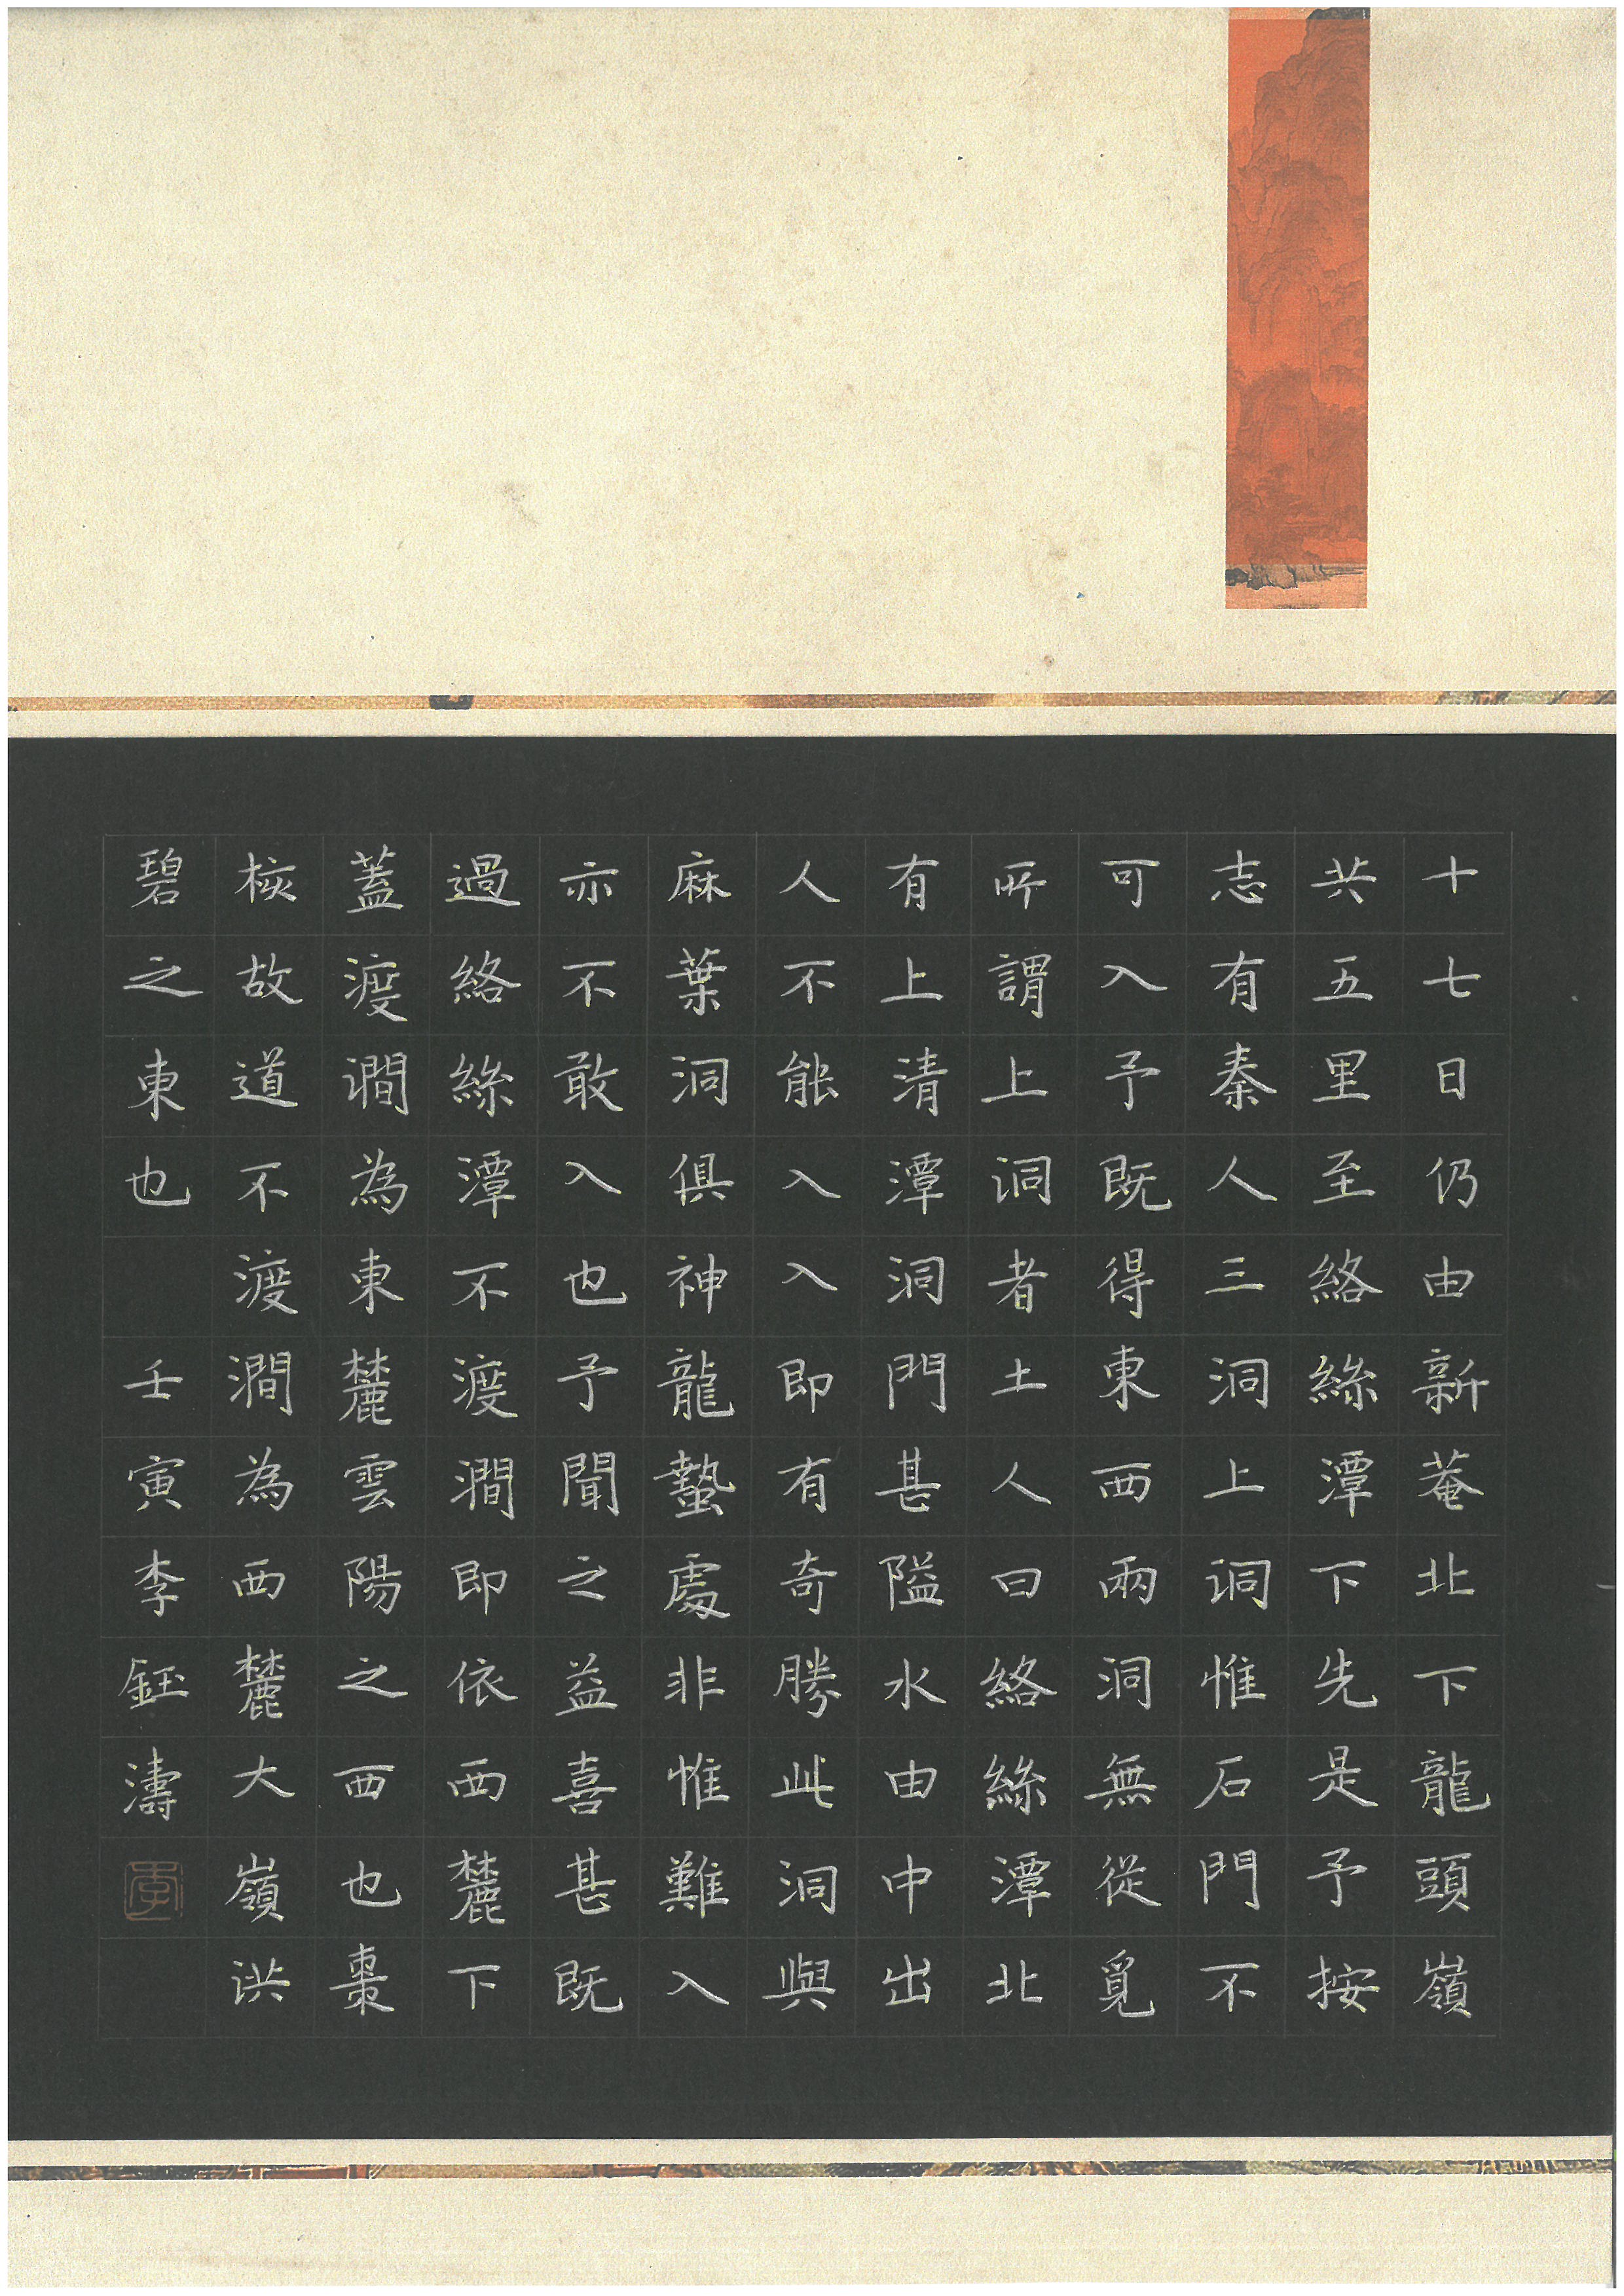 十七日仍由新菴北下龍頭嶺
共五里至絡絲潭下先是予按
志有秦人三洞上詷惟石門不
可入予既得東西兩洞無從覓
所謂上詷者土人曰絡絲潭北
有上清潭洞門甚隘水由中出
人不能入入即有奇勝此洞與
麻葉洞俱神龍蟄處非惟難入
亦不敢入也予聞之益喜甚既
過絡絲潭不渡澗即依西麓下
蓋渡澗為東麓雲陽之西也棗
核故道不渡澗為西麓大嶺洪
碧之東也 壬寅李鈺濤
李